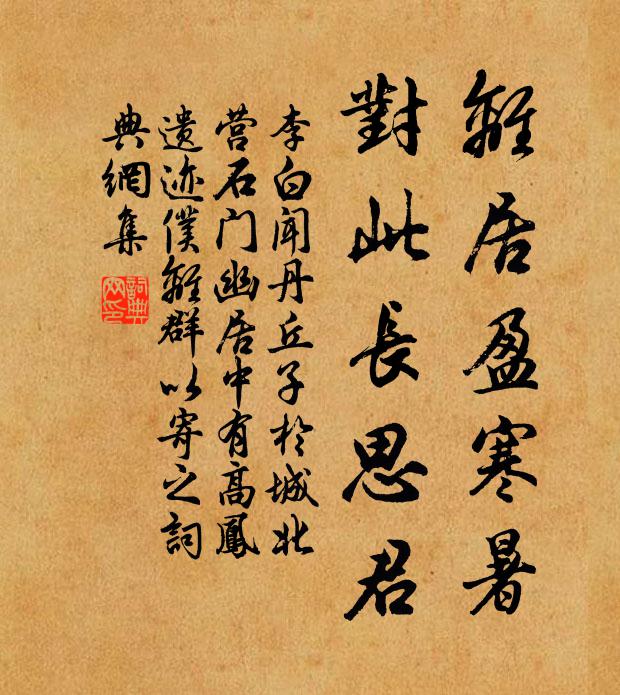 離居盈寒暑
對此長思君
李白聞丹丘子於城北
营石门幽居中有高鳳
遗迹僕離群以寄之詞
典網集
詞典
网印